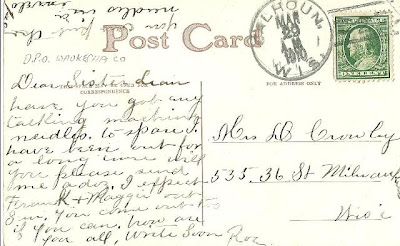 Post Card
D.P.O. WAUKESHA CO
CALHOUN
MAR
23
WIS.
CORRESPONDENCE
FOR ADDRESS ONLY
Dear Sister
have you got any
talking machine
needles to spare I
have been out for
a long time will
you please send
me a doz. I expect
Frank & Maggie out
Sun. You come out to
if you can. how are
you all, Write Soon Roz
Mrs D Crowley
535-36 St Milwauk
Wis